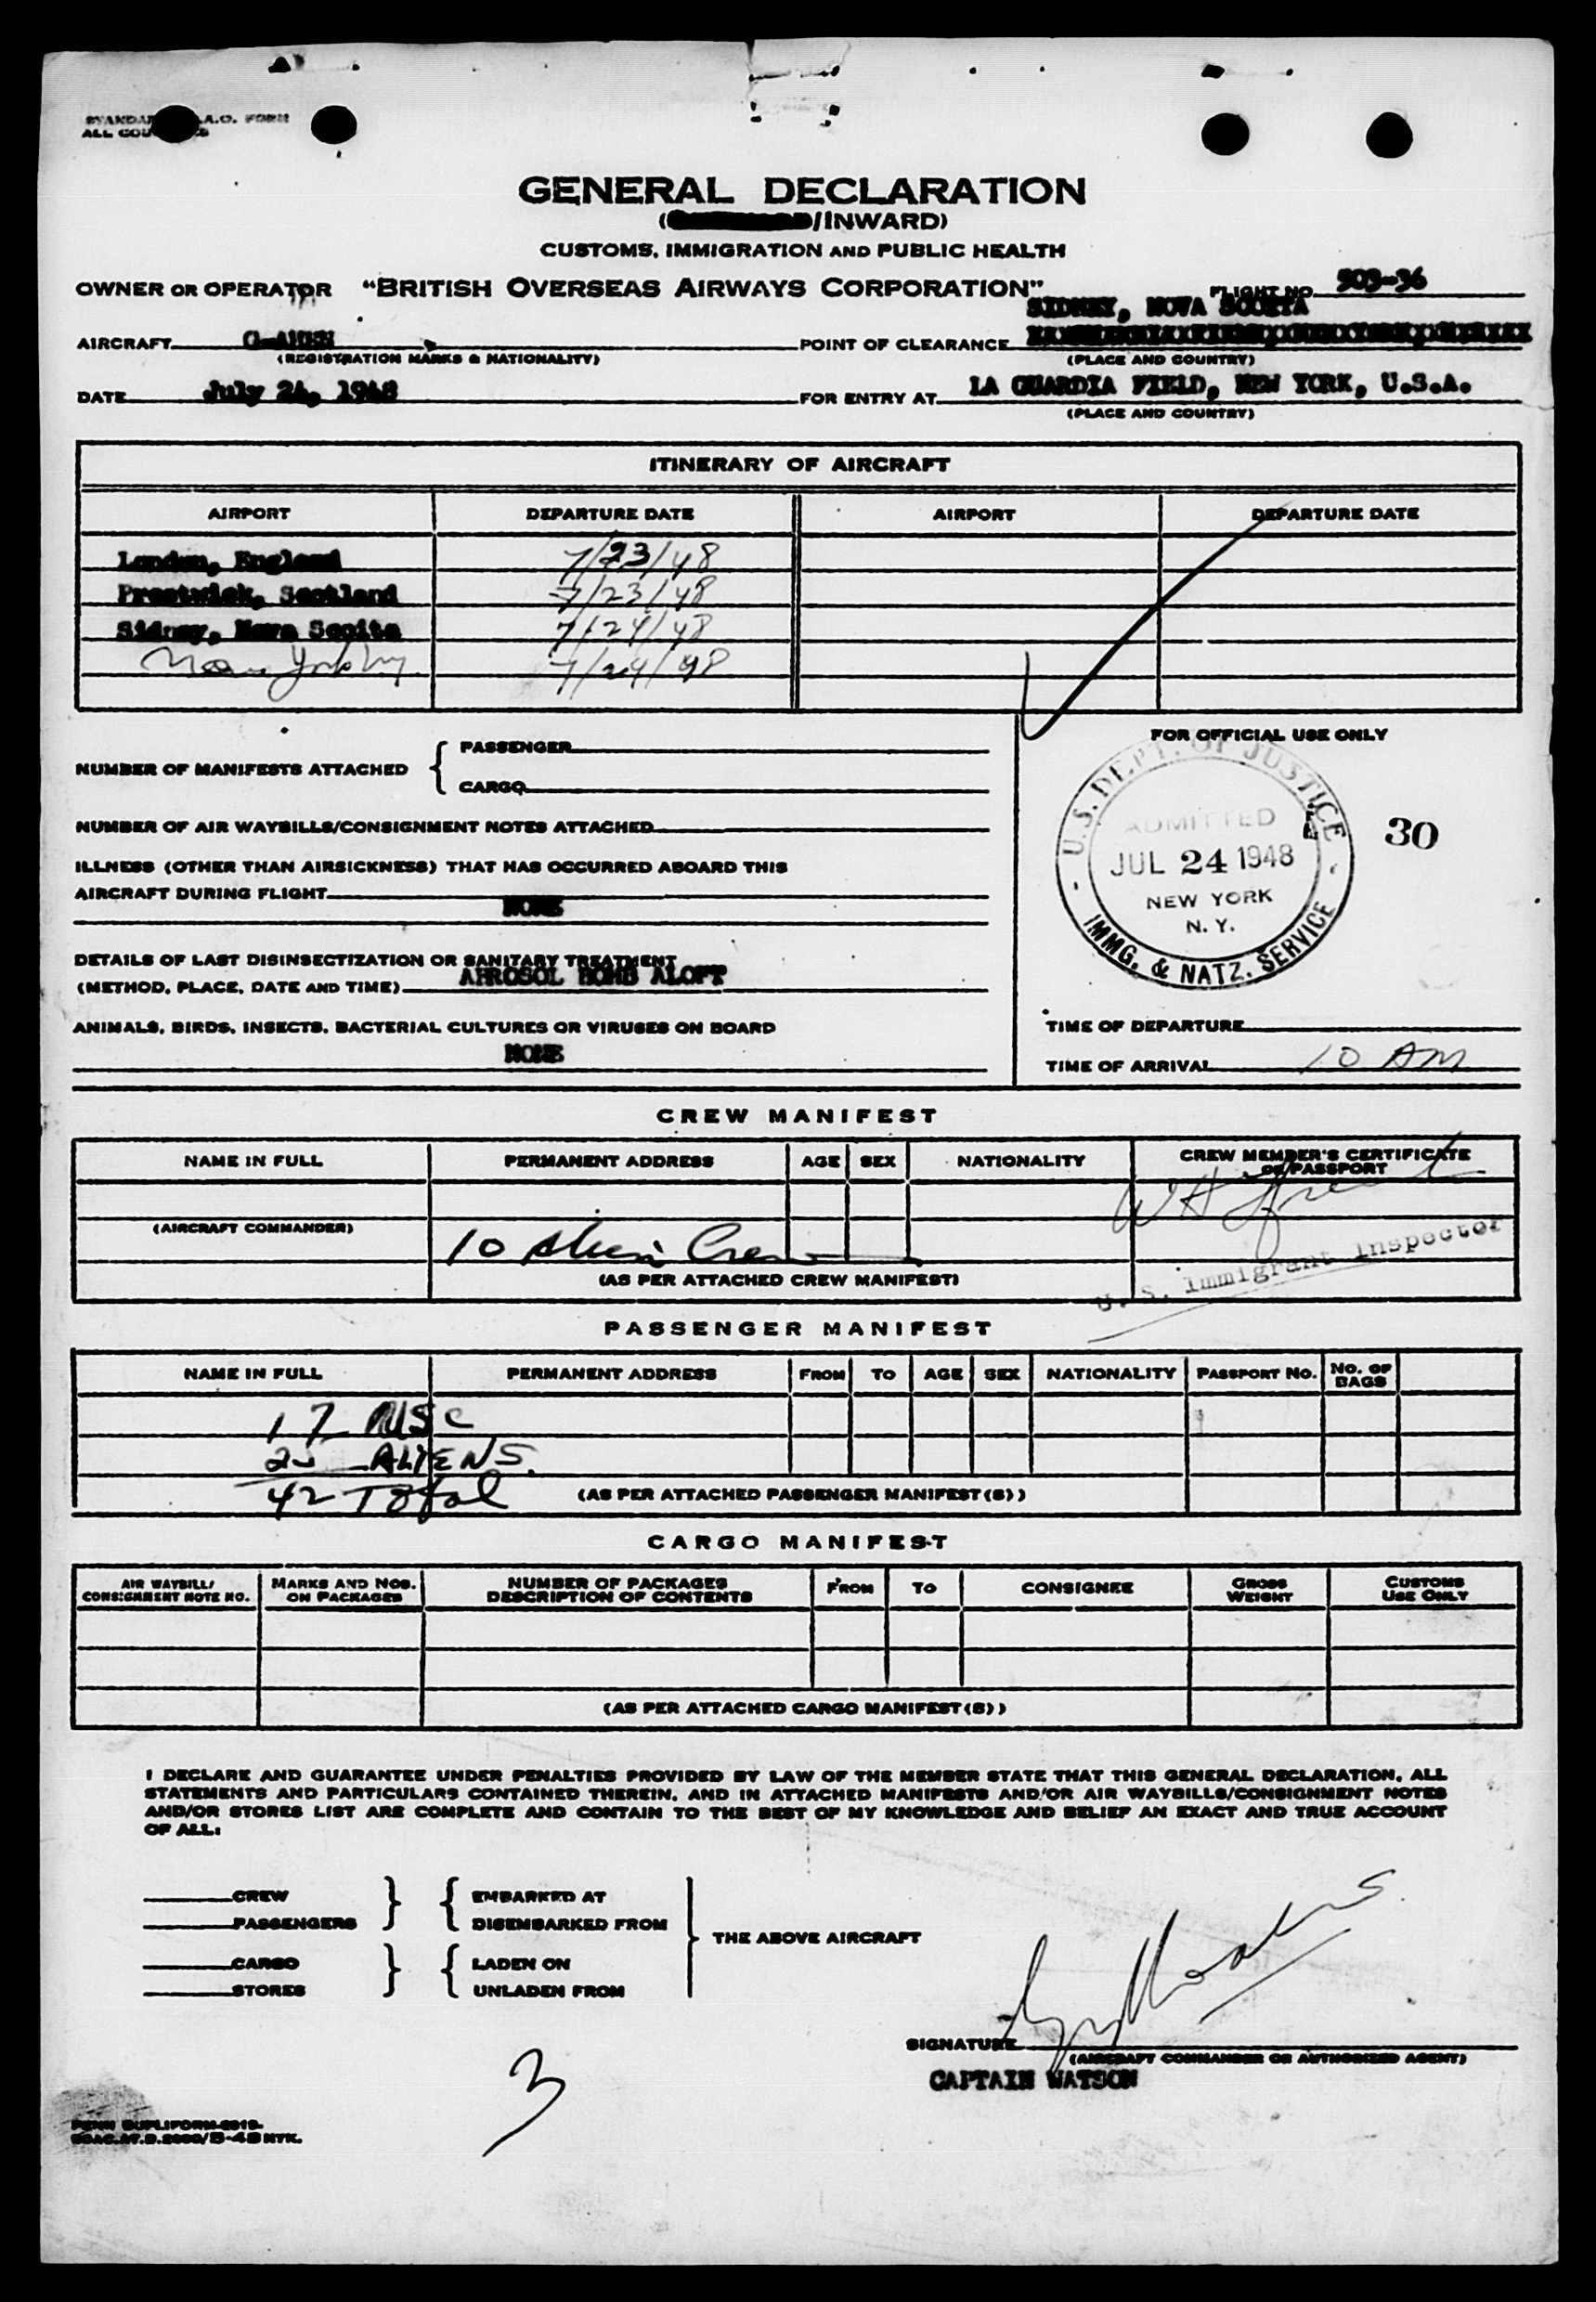 ALL
GENERAL DECLARATION
/INWARD)
CUSTOMS, IMMIGRATION AND PUBLIC HEALTH
OWNER OR OPERATOR "BRITISH OVERSEAS AIRWAYS CORPORATION" FLIGHT NO. 503-36
SIDNEY, NOVA SCOTIA
AIRCRAFT POINT OF CLEARANCE
(REGISTRATION MARKS & NATIONALITY) (PLACE AND COUNTRY)
DATE July 24, 1948 FOR ENTRY AT LA GUARDIA FIELD, NEW YORK, U.S.A.
(PLACE AND COUNTRY)
ITINERARY OF AIRCRAFT
AIRPORT DEPARTURE DATE AIRPORT DEPARTURE DATE
London, England 7/23/48
Prestwick, Scotland 7/23/48
Sidney, Nova Scoita 7/24/48
7/24/48
FOR OFFICIAL USE ONLY
NUMBER OF MANIFESTS ATTACHED { PASSENGER
CARGO
NUMBER OF AIR WAYBILLS/CONSIGNMENT NOTES ATTACHED
ILLNESS (OTHER THAN AIRSICKNESS) THAT HAS OCCURRED ABOARD THIS
AIRCRAFT DURING FLIGHT
NONE
U.S. DEPT. OF JUSTICE
ADMITTED
JUL 24 1948
NEW YORK
N. Y.
IMMG. & NATZ. SERVICE
30
DETAILS OF LAST DISINSECTIZATION OR SANITARY TREATMENT
(METHOD, PLACE, DATE AND TIME) AEROSOL BOMB ALOFT
ANIMALS, BIRDS, INSECTS, BACTERIAL CULTURES OR VIRUSES ON BOARD
NONE
TIME OF DEPARTURE
TIME OF ARRIVAL 10 AM
CREW MANIFEST
NAME IN FULL PERMANENT ADDRESS AGE SEX NATIONALITY CREW MEMBER'S CERTIFICATE
OR PASSPORT
(AIRCRAFT COMMANDER)
10 Alien Crew
(AS PER ATTACHED CREW MANIFEST)
U. S. Immigrant Inspector
PASSENGER MANIFEST
NAME IN FULL PERMANENT ADDRESS FROM TO AGE SEX NATIONALITY PASSPORT NO. NO. OF
BAGS
17 USC
25 ALIENS.
42 Total (AS PER ATTACHED PASSENGER MANIFEST(S))
CARGO MANIFEST
AIR WAYBILL/
CONSIGNMENT NOTE NO. MARKS AND NOS.
ON PACKAGES NUMBER OF PACKAGES
DESCRIPTION OF CONTENTS FROM TO CONSIGNEE GROSS
WEIGHT CUSTOMS
USE ONLY
(AS PER ATTACHED CARGO MANIFEST(S))
I DECLARE AND GUARANTEE UNDER PENALTIES PROVIDED BY LAW OF THE MEMBER STATE THAT THIS GENERAL DECLARATION, ALL
STATEMENTS AND PARTICULARS CONTAINED THEREIN, AND IN ATTACHED MANIFESTS AND/OR AIR WAYBILLS/CONSIGNMENT NOTES
AND/OR STORES LIST ARE COMPLETE AND CONTAIN TO THE BEST OF MY KNOWLEDGE AND BELIEF AN EXACT AND TRUE ACCOUNT
OF ALL:
CREW } { EMBARKED AT
PASSENGERS DISEMBARKED FROM
THE ABOVE AIRCRAFT
CARGO } { LADEN ON
STORES UNLADEN FROM
SIGNATURE
(AIRCRAFT COMMANDER OR AUTHORIZED AGENT)
CAPTAIN WATSON
3